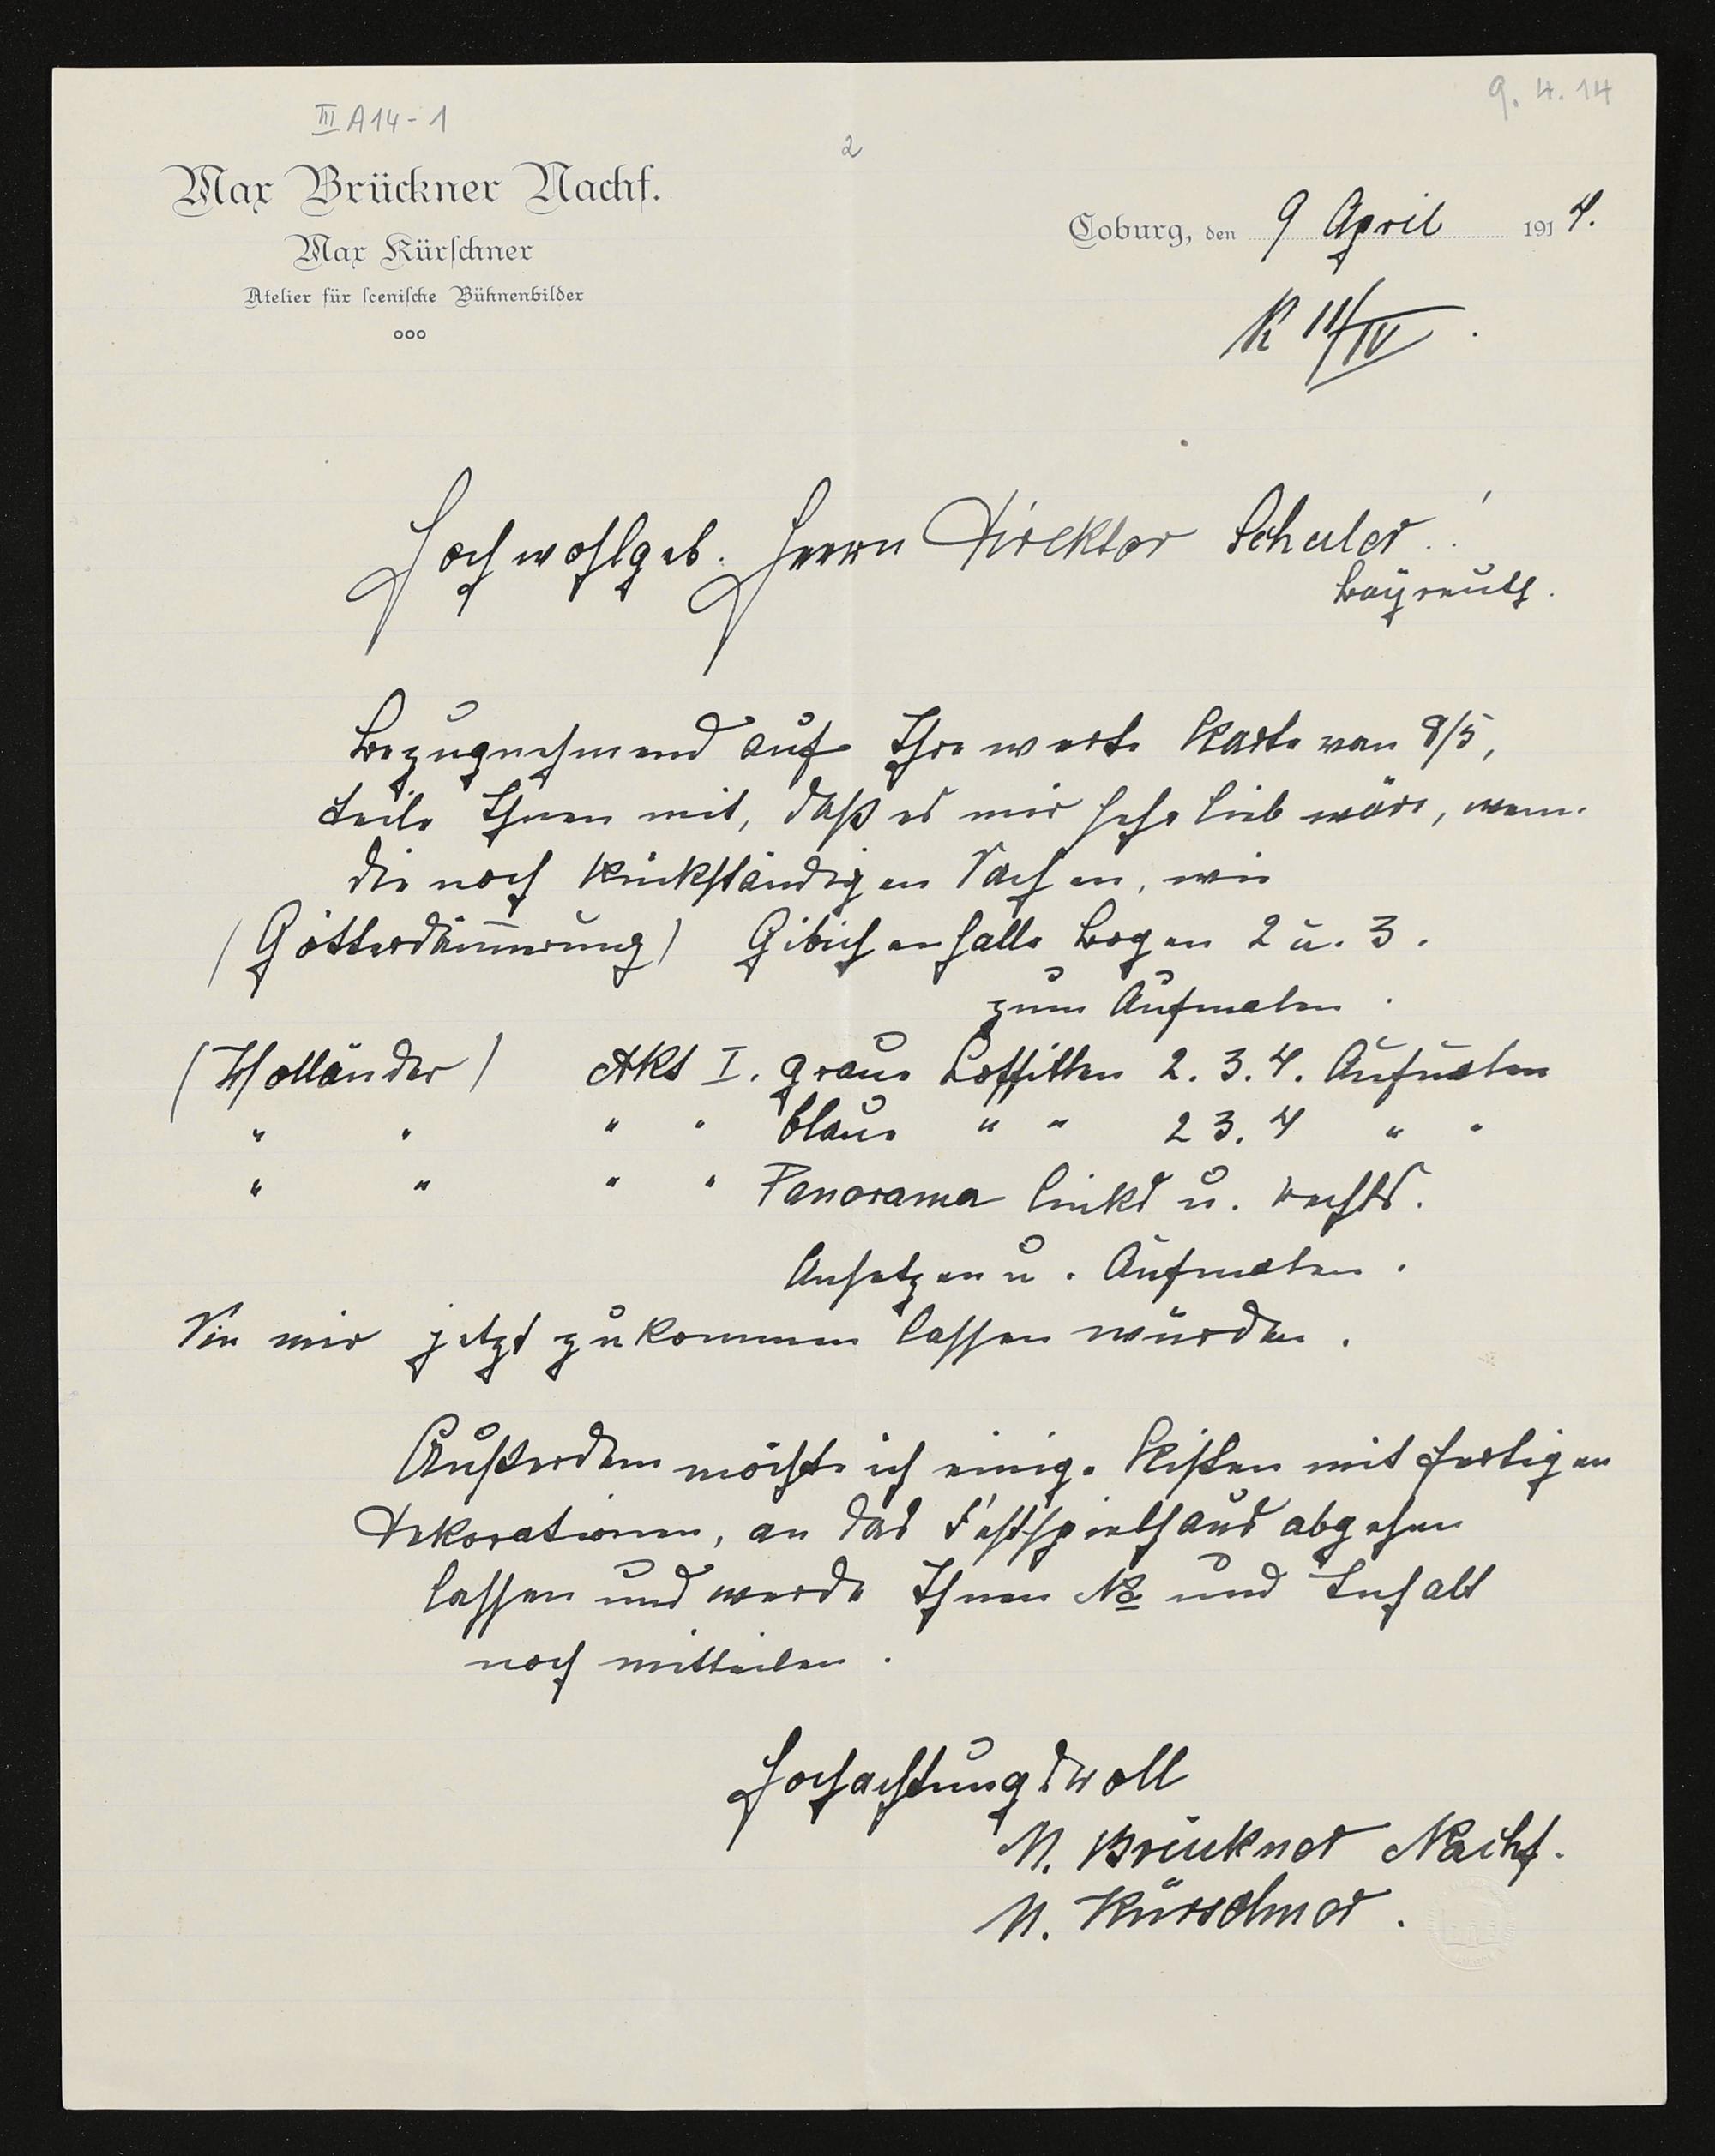 III A14-1
9. 4. 14
2
Max Brückner Nachf.
Max Kürschner
Atelier für scenische Bühnenbilder
Coburg, den 9 April 1914.
R 11/IV.
Hochwohlgeb. Herrn Direktor Schuler!
Bayreuth.
Bezugnehmend auf Ihre werte Karte von 8/5,
teile Ihnen mit, daß es mir sehr lieb wäre, wenn
die noch Rückständigen Sachen, wie
(Götterdämmerung) Gibichenhalle Bogen 2 u. 3.
zum Aufmalen.
(Holländer) Akt I. graue Soffitten 2. 3. 4. Aufmalen
" " " " blaue " " 2 3. 4 " "
" " " " Panorama links u. rechts.
Ansetzen u. Aufmalen.
Sie mir jetzt zukommen lassen würden.
Außerdem möchte ich einige Kisten mit fertigen
Dekorationen, an das Festspielhaus abgehen
lassen und werde Ihnen No und Inhalt
noch mitteilen.
Hochachtungsvoll
M. Brückner Nachf.
M. Kürschner.